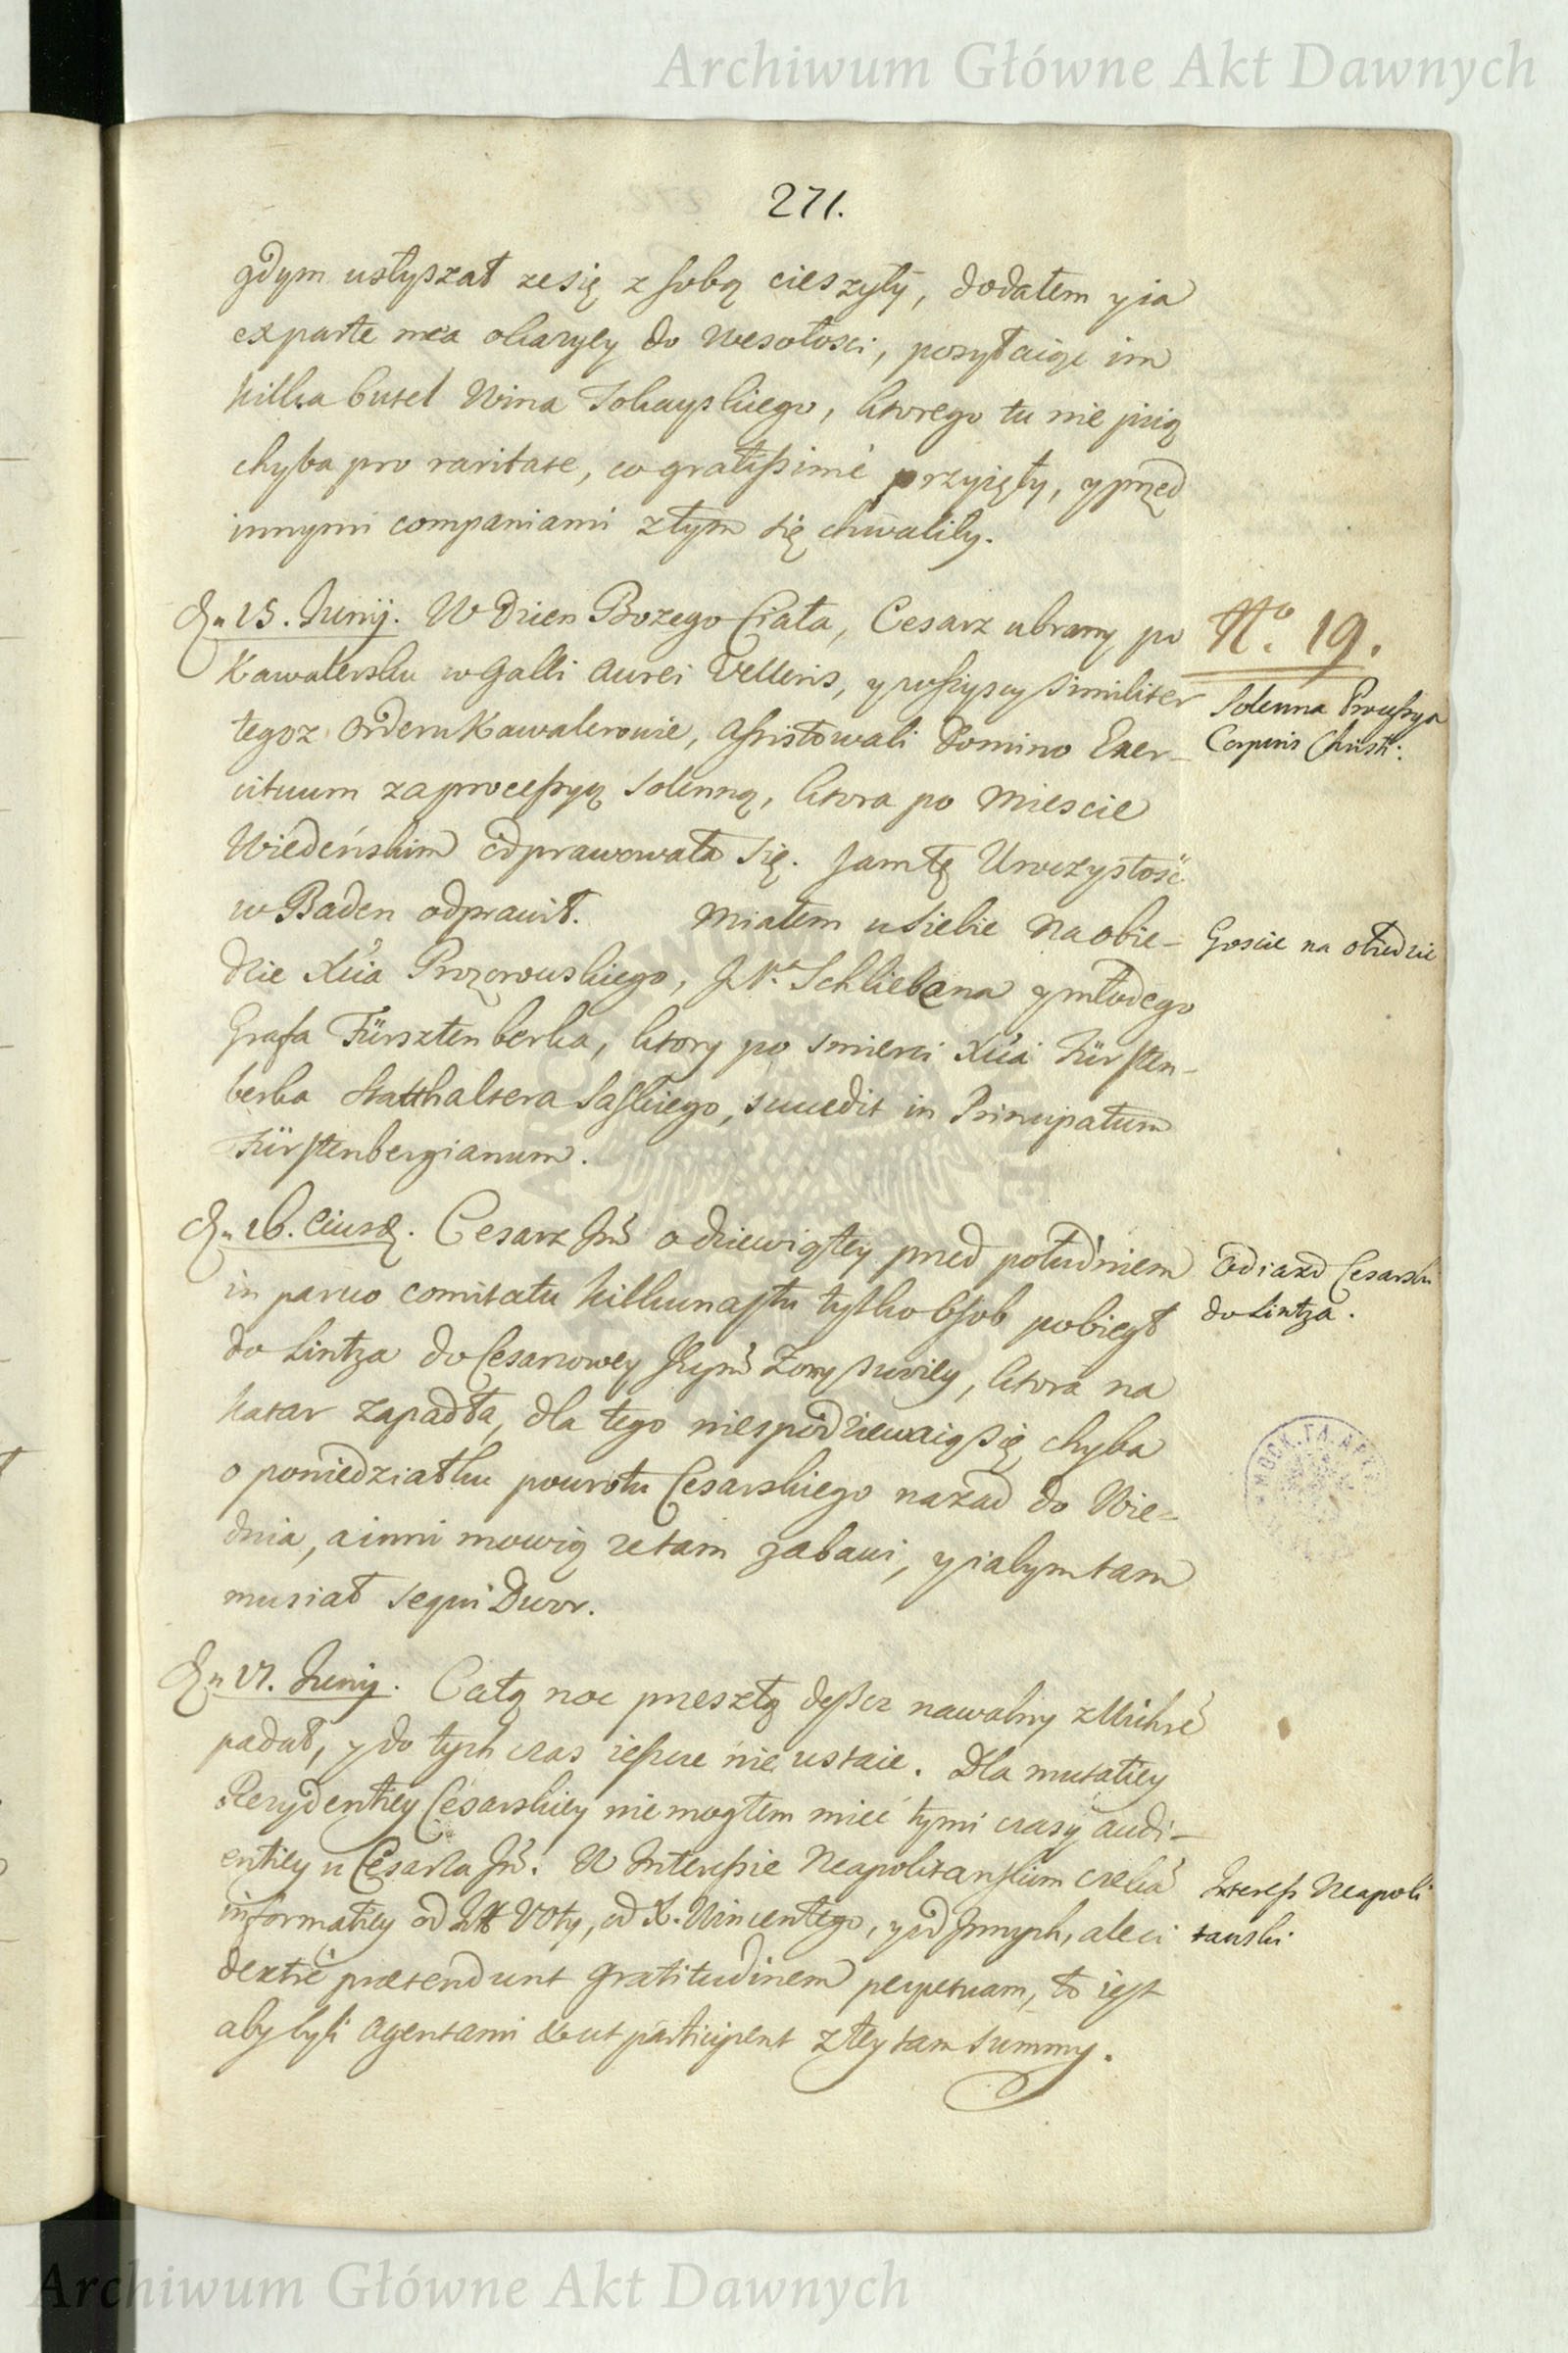 Archiwum Główne Akt Dawnych
271.
gdym usłyszał ze się z sobą cieszyły, dodałem y ia
ex parte mea okazyey do wesołosci, posyłaiąc im
kilka butel Wina Tokayskiego, ktorego tu nie piią
chyba pro raritate, co gratissimé przyięły, y przed
innymi companiami z tym się chwaliły.
Dn 15. Junij. W Dzien Bozego Ciała, Cesarz ubrany po
Kawalersku w Galli Aurei Velleris, y wszyscy similiter
tegoz Orderu Kawalerowie, assistowali Domino Exer-
cituum za processyą solenną, ktora po Miescie
Wiedeńskim odprawowała się. Jam tę Uroczystość
w Baden odprawił. Miałem u siebie na obie-
dzie Xcia Prozorowskiego, Schliebena y młodego
Grafa Fürsztenberka, ktory po smierci Xcia Fürsten-
berka Statthaltera Saskiego, succedit in Principatum
Fürstenbergianum.
Dn 16. eiusd. Cesarz Jmć o dziewiątey przed południem
in parvo comitatu kilkunastu tylko osob pobiegł
do Lintza do Cesarzowey Jeymć Zony swoiey, ktora na
katar zapadła, dla tego niespodziewaią się chyba
o poniedziałku powrotu Cesarskiego nazad do Wie-
dnia, a inni mowią ze tam zabawi, y iabym tam
musiał sequi Dwor.
Dn 17. Junij. Całą noc przeszłą deszcz nawalny
padał, y do tych czas ieszcze nie ustaie. Dla mutatiey
Rezydentiey Cesarskiey nie mogłem mieć tymi czasy audi-
entiey u Cesarza Jmć. W Interessie Neapolitanskim
informatiey od Voty, od X. Wincentego, y od Jnnych, ale ci
dextré praetendunt gratitudinem perpetuam, to iest
aby byli Agentami & ut participent z tey tam summy.
No. 19.
Solenna Processya
Corporis Christi.
Goscie na obiedzie
Odiazd Cesarski
do Lintza.
Interess Neapoli
tanski
Archiwum Główne Akt Dawnych